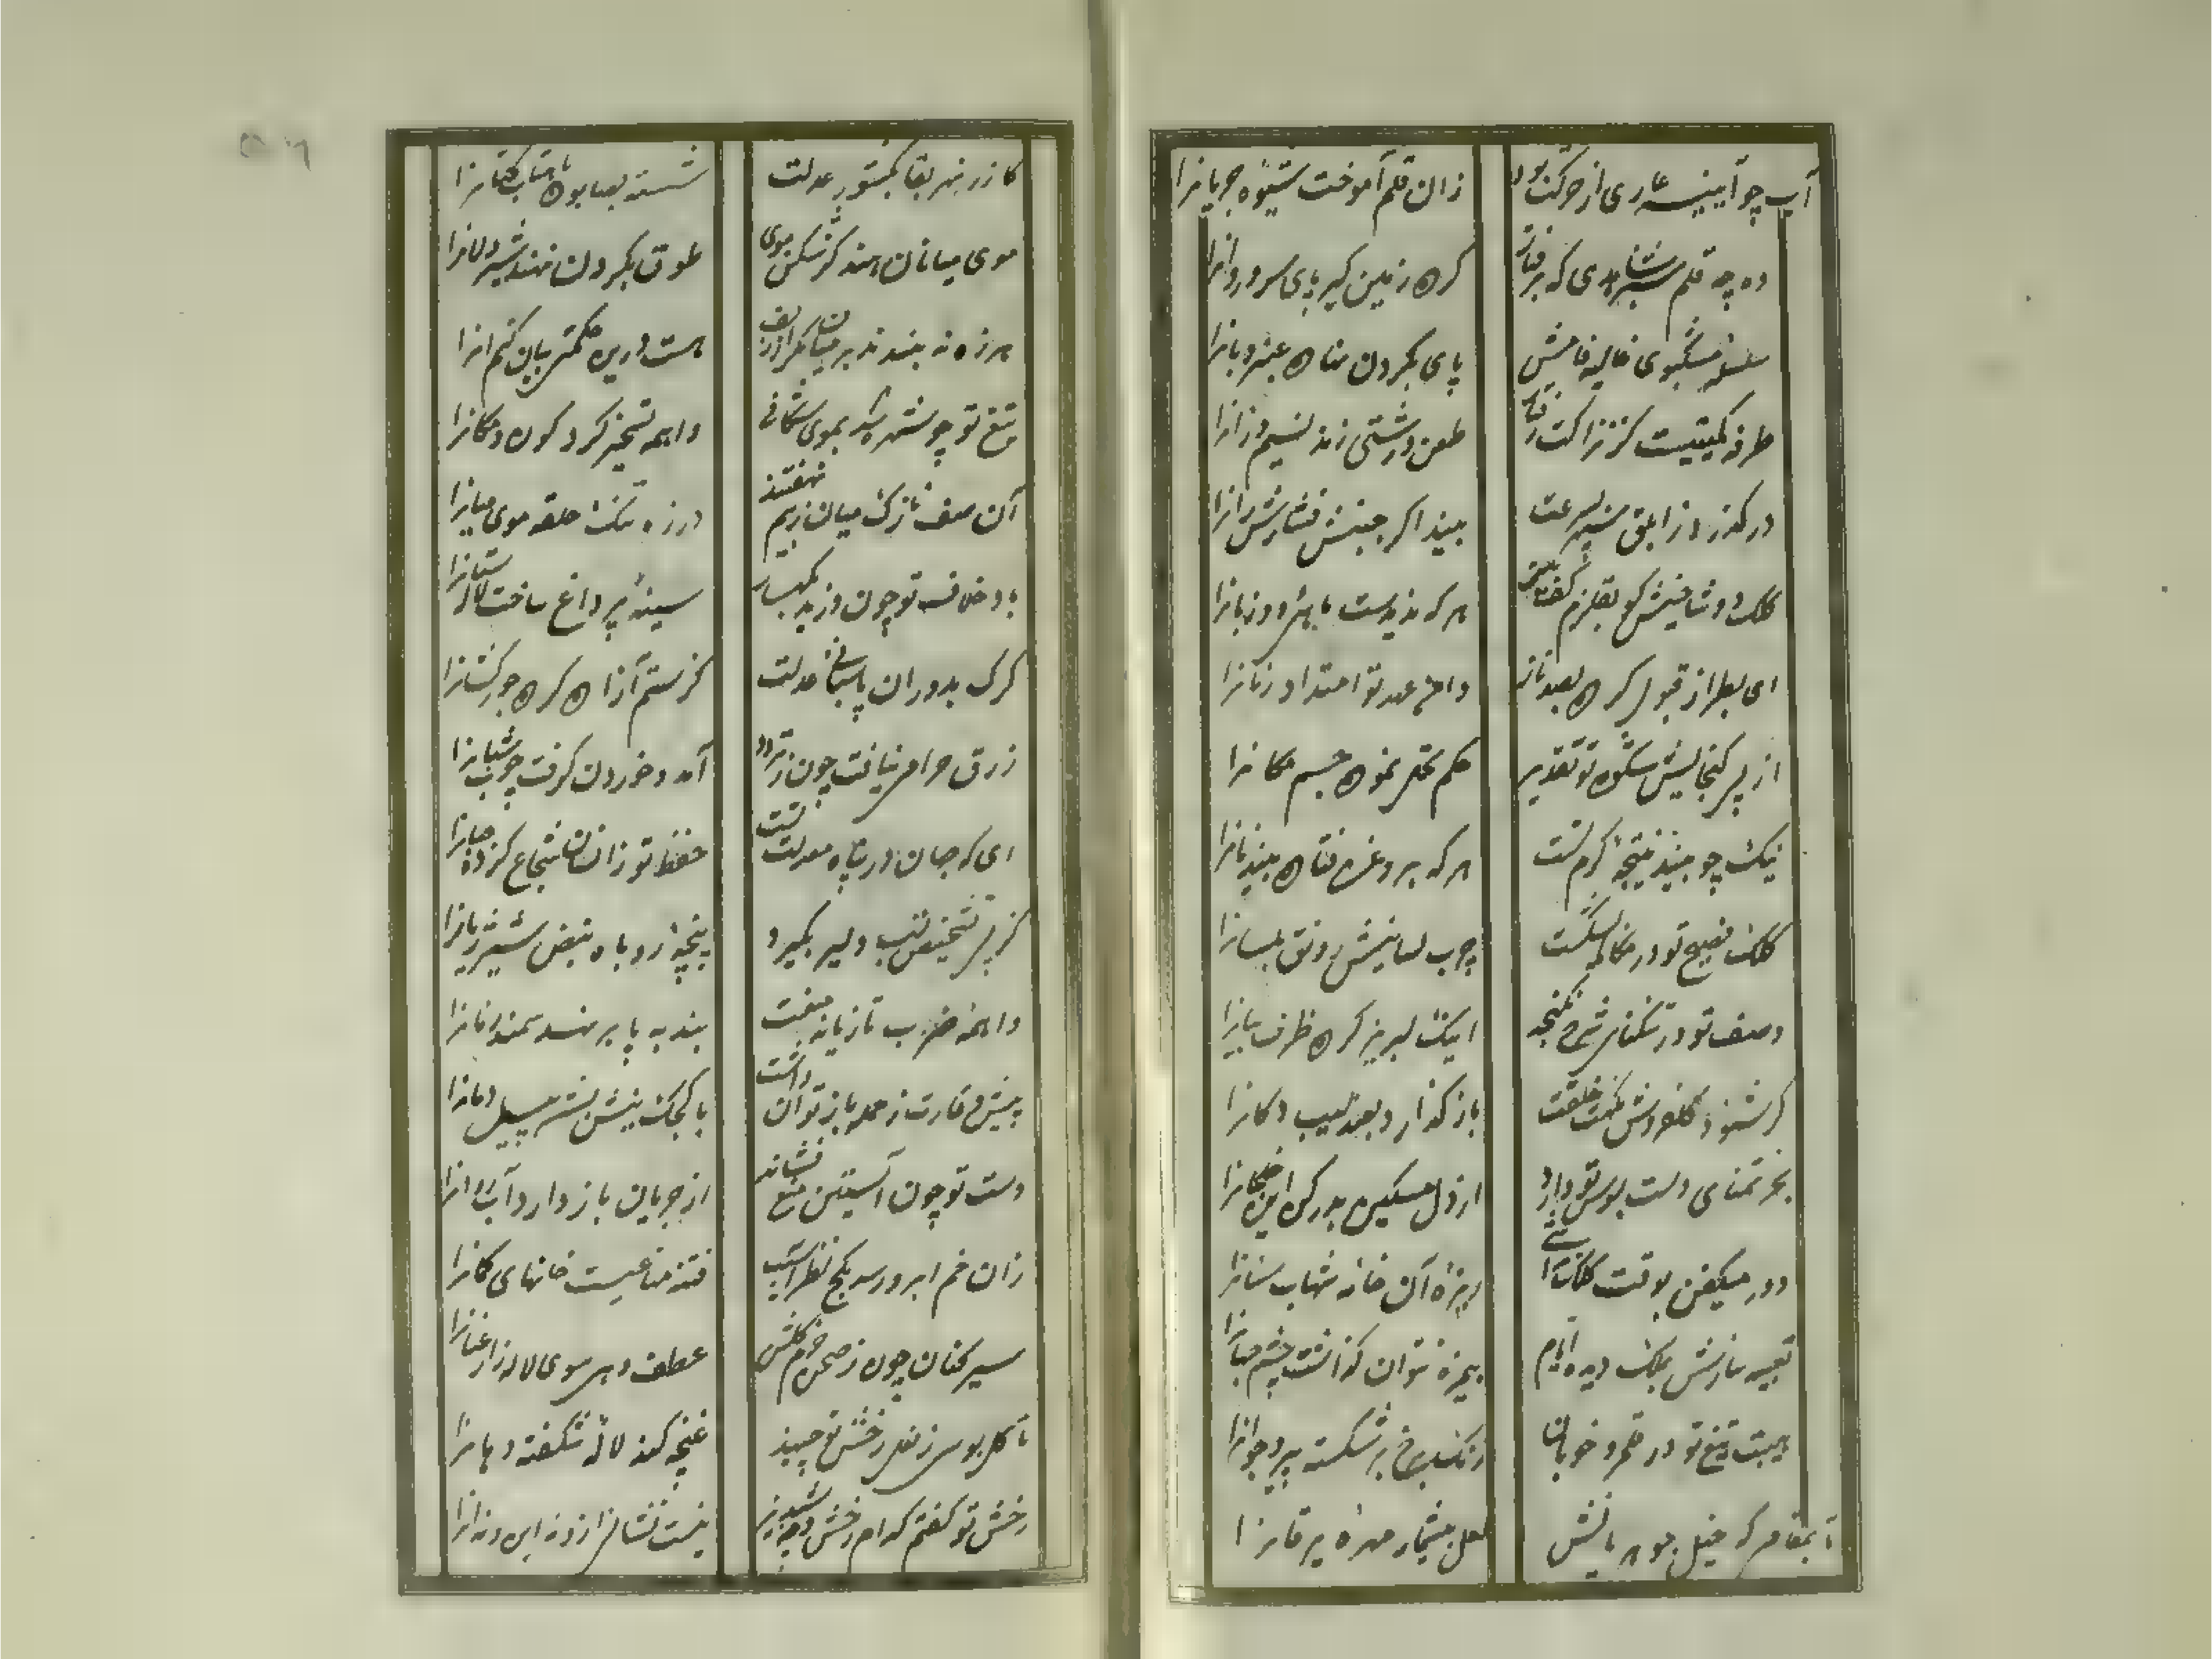 آب چو آیینه عاری از حرکت بود
زان قلم آموخت شیوه جریانرا
وه چه قلم که برفتار
کره زمین گیر پای سرو روانرا
سلسله مشکبوی غالیه فامش
پای بگردن عنبر و بانرا
طرفه کز نزاکت رفتار
طعن درشتی زند نسیم وزانرا
در گذرد از ابلق سپهر بسرعت
بیند اگر جنبش رانرا
کلک دو شاخیش کو بقلزم کفت
هر که ندیدست ماهی دو زبانرا
ای بطراز قبول کرده بعهد
دامن عهد تو امتداد زمانرا
از پی گنجایش شکوه تو تقدیر
حکم نموده جسم مکانرا
نیک چو بیند نتیجه کرم تست
هر که بروغن فتاده بیند نانرا
کلک فصیح تو در شکست
چرب لسانیش رونق بلسانرا
وصف تو در تنگنای شرح نگنجد
اینک لبریز کرده ظرف بیانرا
گر شنود گلفروش نکهت خلقت
باز گذارد بعندلیب دکانرا
بحر تمنای دست بوس تو دارد
از دل مسکین بدر کن این خفقانرا
دور میفکن بوقت
ریزه آن خانه شهاب سنانرا
تعبیه سازش بکلک دیده ایام
بیمژه نتوان گذاشت چشم جهانرا
هیبت تیغ تو در قلمرو خوبان
رنگ برخ بر شکسته پیر و جوانرا
تا بمقامی که خیل جوهریانش
لعل شمارد مهره یرقانرا
گازر نهر بقا بمشور عدلت
شسته بصابون ماهتاب کتانرا
موی میانان هند گر شکن موی
طوق بگردن نهند شیردلانرا
هرزه نه بندند بر میان کمر از زلف
هست درین حکمتی بیان کنم آنرا
تیغ تو چو شهره شد بموی شکافی
واهمه تسخیر کرد کون و مکانرا
آن صف نازک میان ز بیم نهفتند
در زره تنگ حلقه موی میانرا
باد خلاف تو چون وزید بکهسار
سینه پر داغ ساخت لاله ستانرا
گرگ بدوران پاسبانی عدلت
کز ستم آزاده کرده جور کشانرا
رزق حرامی نیافت چون ز تردد
آمد و خوردن گرفت چوب شبانرا
ای که جهان در پناه معدلت تست
حفظ تو زان سان شجاع کرده جبانرا
کز پی تشخیص تب دلیر بگیرد
پنجه روباه نبض شیر ژیانرا
واهمه ضرب تازیانه منعت
بند به پا بر نهد سمند دمانرا
پیش وقارت ز حمله باز توان داشت
با کجک نیش پشه پیل دمانرا
دست تو چون آستین منع فشاند
از جریان باز دارد آب روانرا
زان خم ابرو رسد بکج نظر آسیب
فتنه متاعیست خانهای کمانرا
سیر کنان چون ز صحن خرم گلشن
عطف دهی سوی لاله زار عنانرا
تا گل بوسی ز نعل رخش تو چیند
غنچه کند لاله شکفته دهانرا
رخش تو گفتم کدام رخش و چه شبدیز
نیست نشانی ازو نه این و نه آنرا